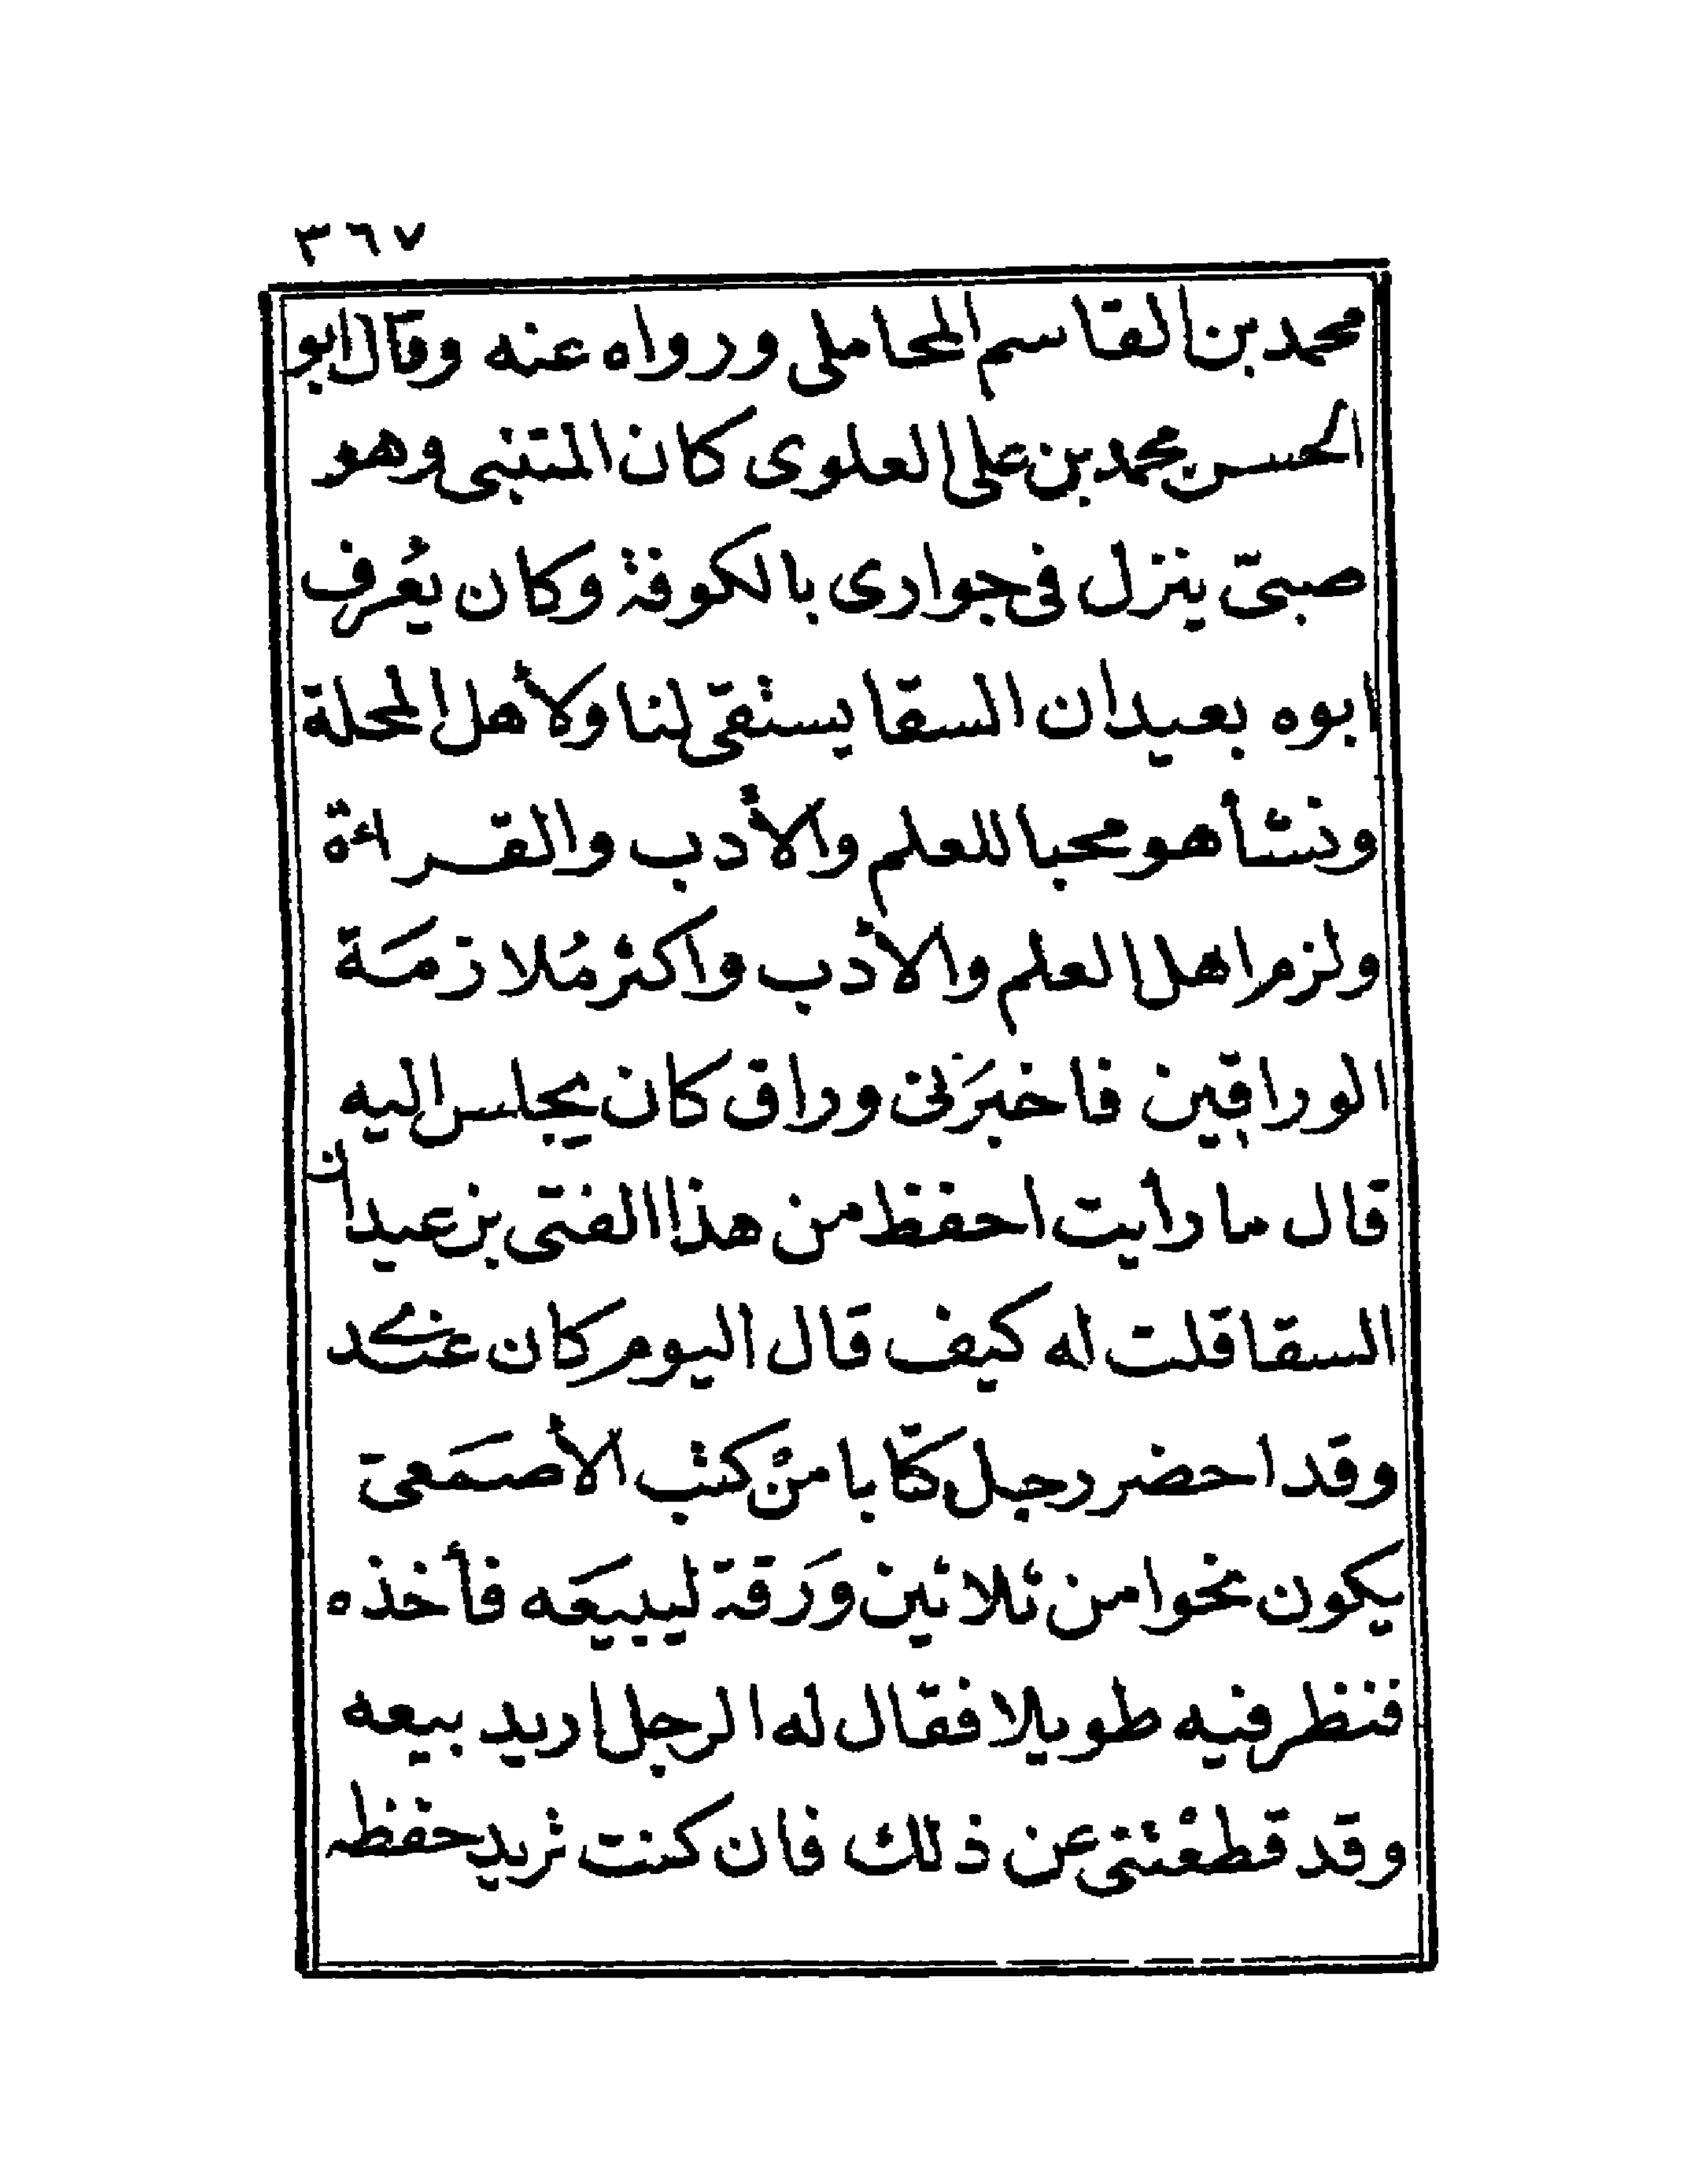 ٣٦٧
محمد بن القاسم المحاملى ورواه عنه وقال ابو
الحسن محمد بن على العلوى كان المتنبى وهو
صبىّ ينزل فى جوارى بالكوفة وكان يُعْرف
ابوه بعيدان السقا يستقى لنا ولأهل المحلة
ونشأ هو محبا للعلم والأدب والقراءة
ولزم اهل العلم والأدب واكثر مُلازمَة
الوراقين فاخبَرَنى وراق كان يجلس اليه
قال ما رأيت احفظ من هذا الفتى بن عيدان
السقا قلت له كيف قال اليوم كان عندى
وقد احضر رجل كتابا منْ كتب الأصمَعىّ
يكون نحوا من ثلاثين وَرَقة ليبيعَه فأخذه
فنظر فيه طويلا فقال له الرجل اريد بيعه
وقد قطعْتنى عن ذلك فان كنت تريد حفظه